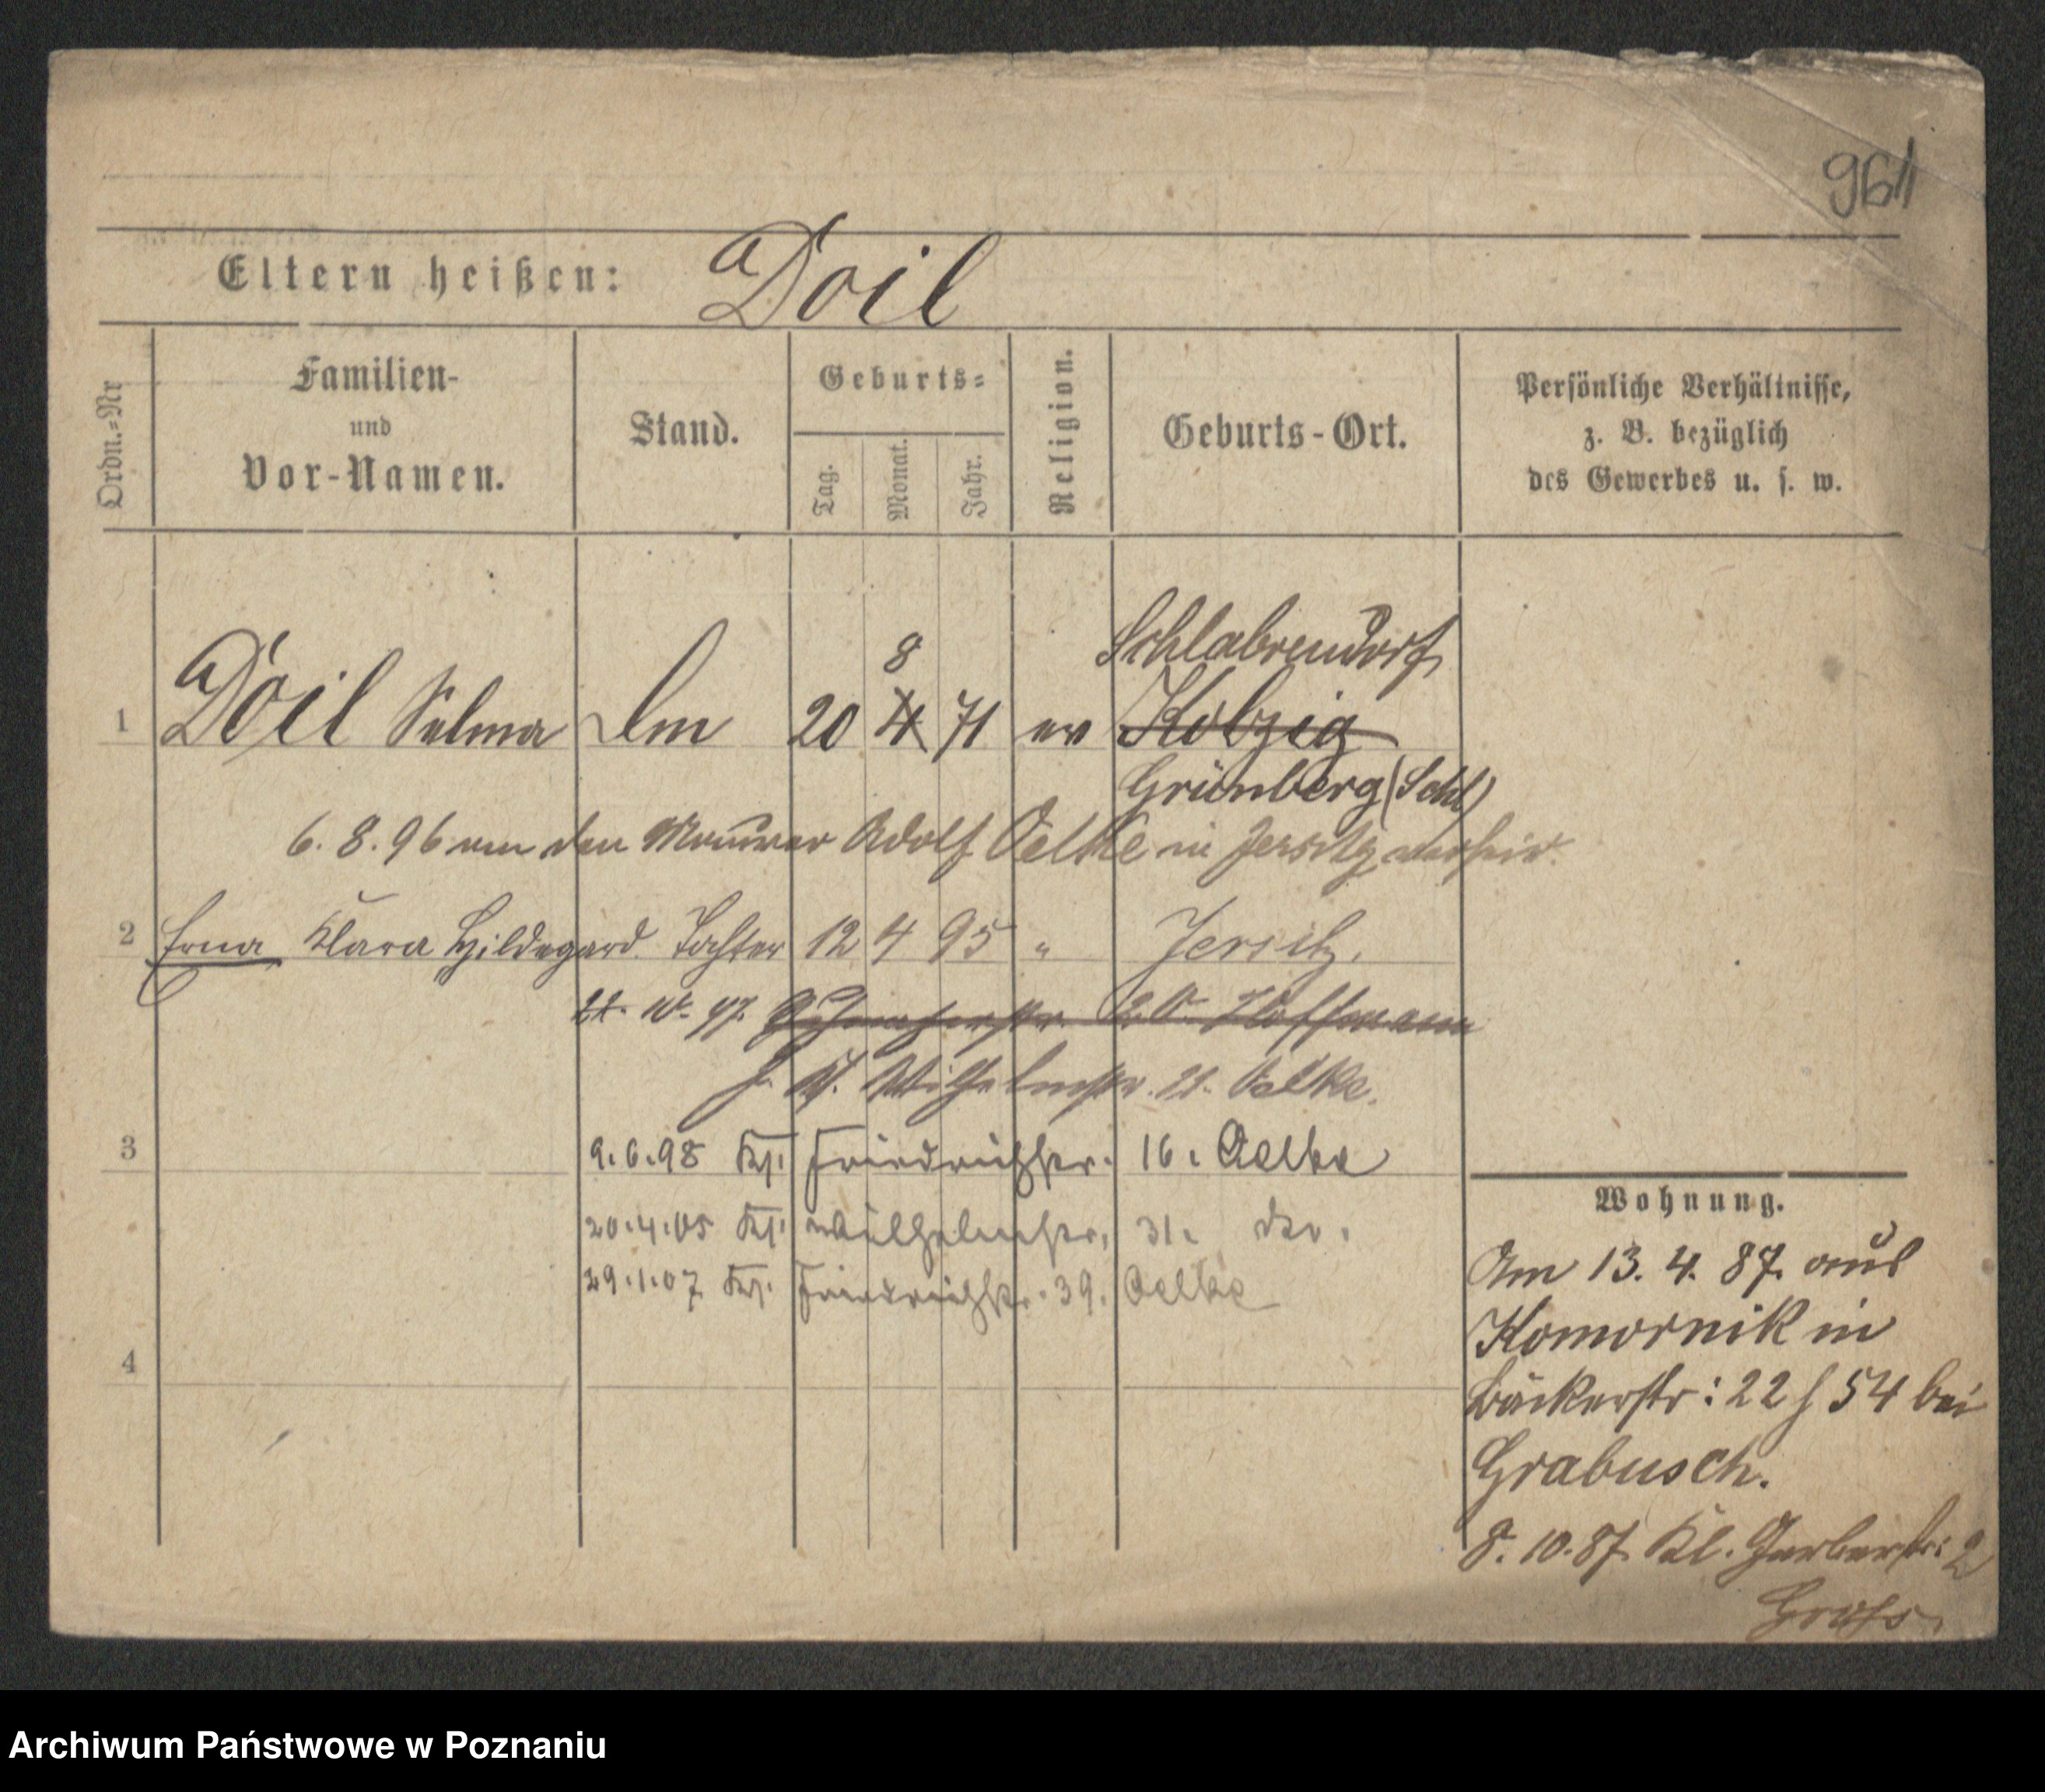 961
Eltern heißen: Doil
Ordn.=Nr
Familien-
und
Vor-Namen.
Stand.
Geburts=
Tag.
Monat.
Jahr.
Religion.
Geburts-Ort.
Persönliche Verhältnisse,
z. B. bezüglich
des Gewerbes u. s. w.
8 Schlabrendorf
1 Doil Selma Dm 20 4 71 ev Kolzig
Grünberg (Schl)
6. 8. 96 an den Maurer Adolf Oelke in Jersitz verheir.
2 Erna Klara Hildegard. Tochter 12 4 95 " Jersitz.
97. Hoffmann
Wilhelmstr. 21. Oelke.
3 9.6.98 Friedrichstr. 16. Oelke
20.4.05 Wilhelmstr. 31. do.
29.1.07 Friedrichstr. 39. Oelke
4
Wohnung.
Am 13. 4. 87. aus
Komornik in
Bäckerstr: 22 54 bei
Grabusch.
8. 10. 87 Kl. Gerberstr: 2
Archiwum Państwowe w Poznaniu